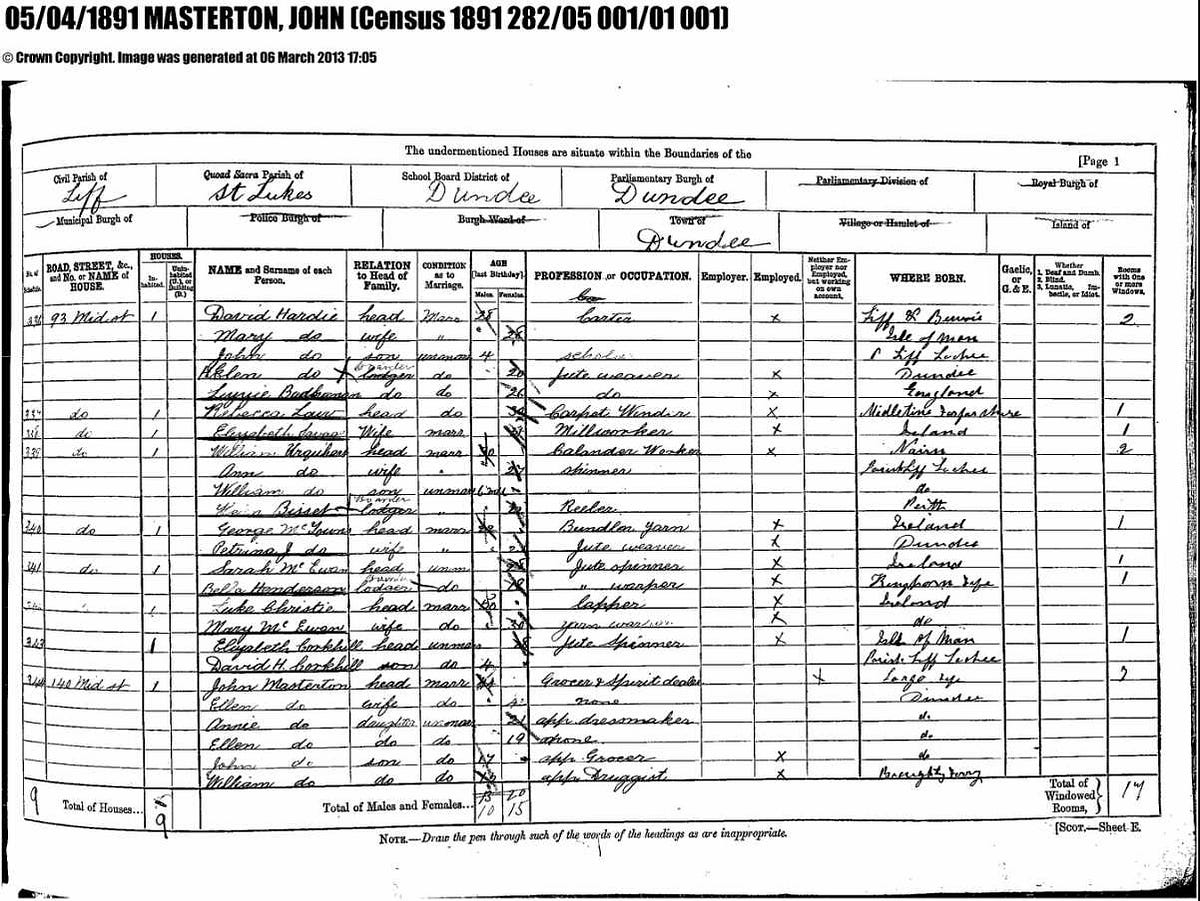 05/04/1891 MASTERTON, JOHN (Census 1891 282/05 001/01 001)
© Crown Copyright. Image was generated at 06 March 2013 17:05
The undermentioned Houses are situate within the Boundaries of the
[Page 1
Civil Parish of Quoad Sacra Parish of School Board District of Parliamentary Burgh of Parliamentary Division of Royal Burgh of
Liff St Lukes Dundee Dundee
Municipal Burgh of Police Burgh of Burgh Ward of Town of Village or Hamlet of Island of
Dundee
No. of Schedule. ROAD, STREET, &c., and No. or NAME of HOUSE. HOUSES. Inhabited. Uninhabited (U.), or Building (B.) NAME and Surname of each Person. RELATION to Head of Family. CONDITION as to Marriage. AGE [last Birthday]. Males. Females. PROFESSION or OCCUPATION. Employer. Employed. Neither Employer nor Employed, but working on own account. WHERE BORN. Gaelic, or G. & E. Whether 1. Deaf and Dumb. 2. Blind. 3. Lunatic, Imbecile, or Idiot. Rooms with One or more Windows.
336 93 Mid st 1 David Hardie head Marr 28 Carter x Liff & Benvie 2
Mary do wife " 28 Isle of Man
John do son unmarr 4 scholar Liff Lochee
Helen do Boarder lodger do 20 Jute weaver x Dundee
do do 26 do x England
337 do 1 Rebecca Law head do Carpet Winder x Forfarshire 1
338 do 1 Elizabeth Wife marr Millworker x Ireland 1
339 do 1 William Urquhart head marr 30 Calander Worker x Nairn 2
Ann do wife " 27 spinner Lochee
William do son unmarr 6 mo do
Bisset Boarder lodger " Reeler Perth
340 do 1 George head marr Bundler yarn x Ireland 1
Petrina J do wife " Jute weaver x Dundee
341 do 1 Sarah McEwan head unm Jute spinner x Ireland 1
Bella Henderson lodger do " x Kinghorn Fife 1
1 Luke Christie head marr 50 lapper x Ireland
Mary McEwan wife do yarn x do
343 1 Elizabeth Corkhill head unmarr Jute Spinner x Isle of Man 1
David H. Corkhill son do 4 Liff Lochee
344 140 Mid st 1 John Masterton head marr Grocer & Spirit dealer x Largo Fife 7
Ellen do wife do none Dundee
Annie do daughter unmarr 21 app dressmaker do
Ellen do do do 19 none do
John do son do 17 app Grocer x do
William do do do app Druggist x Broughty Ferry
9 Total of Houses... 9 Total of Males and Females... 10 15 Total of Windowed Rooms, } 17
NOTE.—Draw the pen through such of the words of the headings as are inappropriate.
[SCOT.—Sheet E.